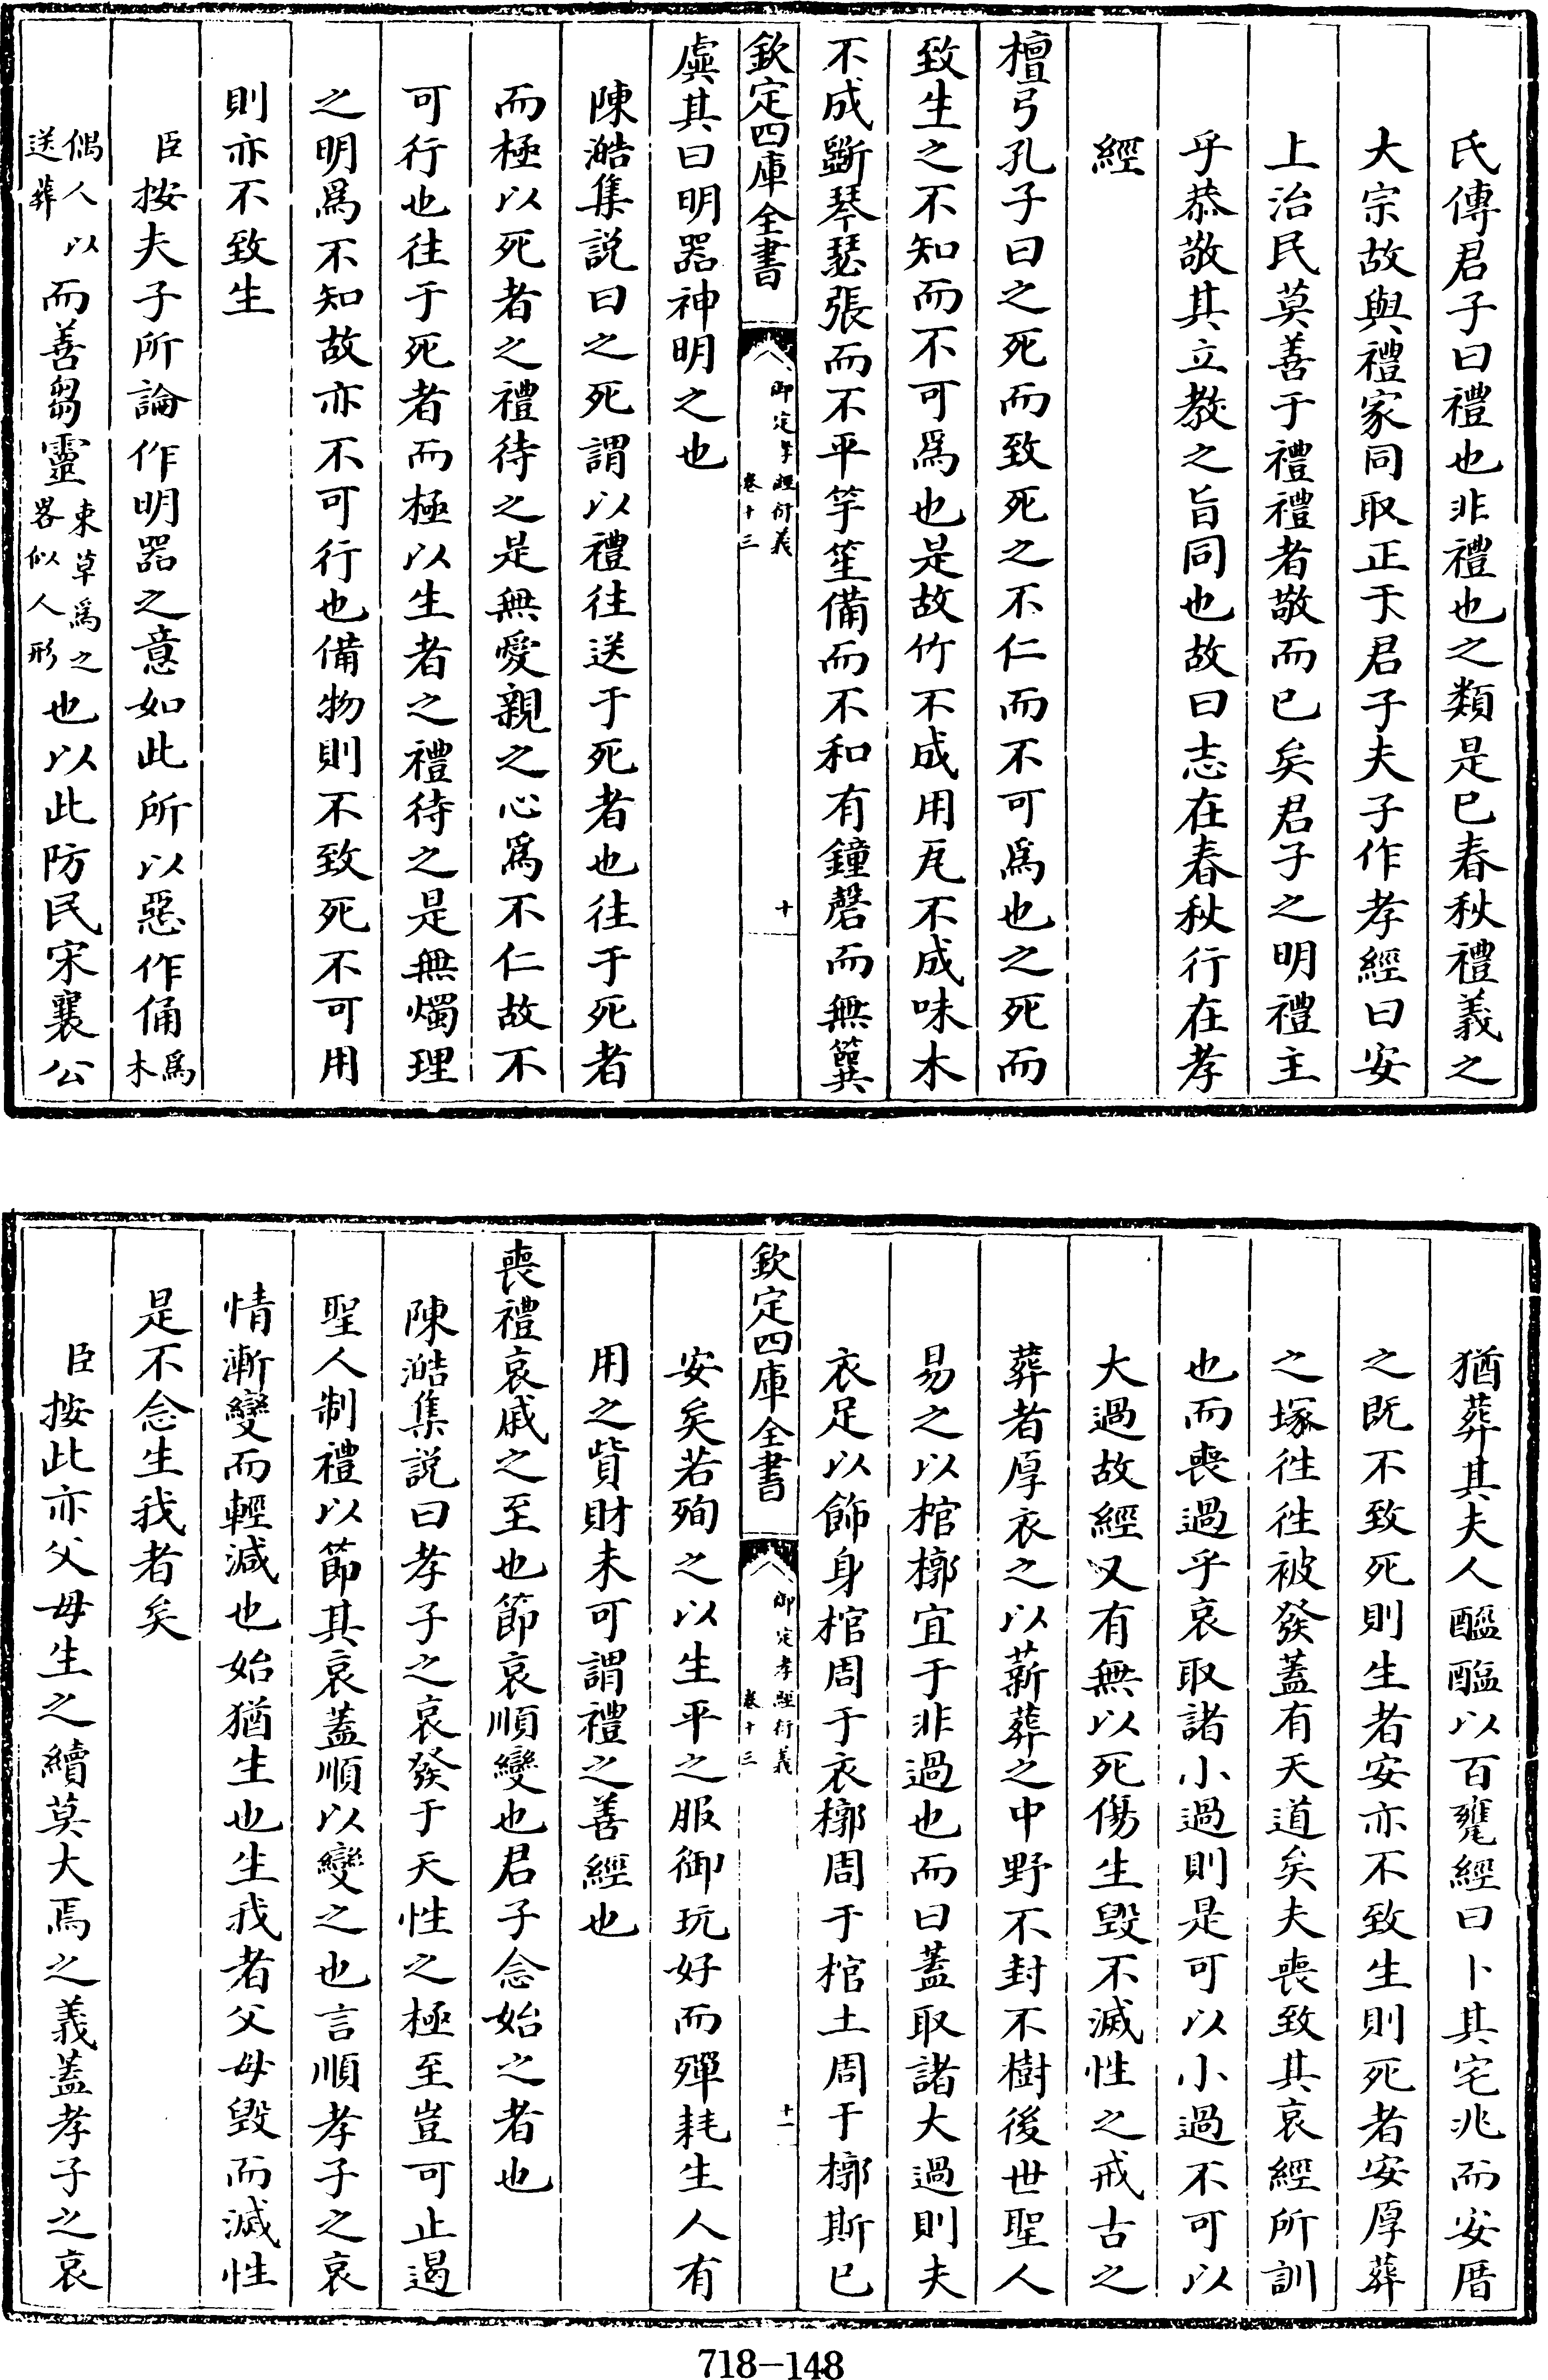 氏傳君子曰禮也非禮也之類是已春秋禮義之
大宗故與禮家同取正于君子夫子作孝經曰安
上治民莫善于禮禮者敬而已矣君子之明禮主
乎恭敬其立教之旨同也故曰志在春秋行在孝
經
檀弓孔子曰之死而致死之不仁而不可爲也之死而
致生之不知而不可爲也是故竹不成用瓦不成味木
不成斲琴瑟張而不平竽笙備而不和有鐘磬而無簨
欽定四庫全書
御定孝經衍義
卷十三
十
虡其曰明器神明之也
陳澔集説曰之死謂以禮往送于死者也往于死者
而極以死者之禮待之是無愛親之心爲不仁故不
可行也往于死者而極以生者之禮待之是無燭理
之明爲不知故亦不可行也備物則不致死不可用
則亦不致生
臣按夫子所論作明器之意如此所以惡作俑爲木
偶人以送葬而善芻靈束草爲之畧似人形也以此防民宋襄公
猶葬其夫人醯醢以百甕經曰卜其宅兆而安厝
之既不致死則生者安亦不致生則死者安厚葬
之塚徃徃被發蓋有天道矣夫喪致其哀經所訓
也而喪過乎哀取諸小過則是可以小過不可以
大過故經又有無以死傷生毀不滅性之戒古之
葬者厚衣之以薪葬之中野不封不樹後世聖人
易之以棺槨宜于非過也而曰蓋取諸大過則夫
衣足以飾身棺周于衣槨周于棺土周于槨斯已
欽定四庫全書
御定孝經衍義
卷十三
十一
安矣若殉之以生平之服御玩好而殫耗生人有
用之貲財未可謂禮之善經也
喪禮哀戚之至也節哀順變也君子念始之者也
陳澔集説曰孝子之哀發于天性之極至豈可止遏
聖人制禮以節其哀蓋順以變之也言順孝子之哀
情漸變而輕減也始猶生也生我者父母毀而滅性
是不念生我者矣
臣按此亦父母生之續莫大焉之義蓋孝子之哀
718-148